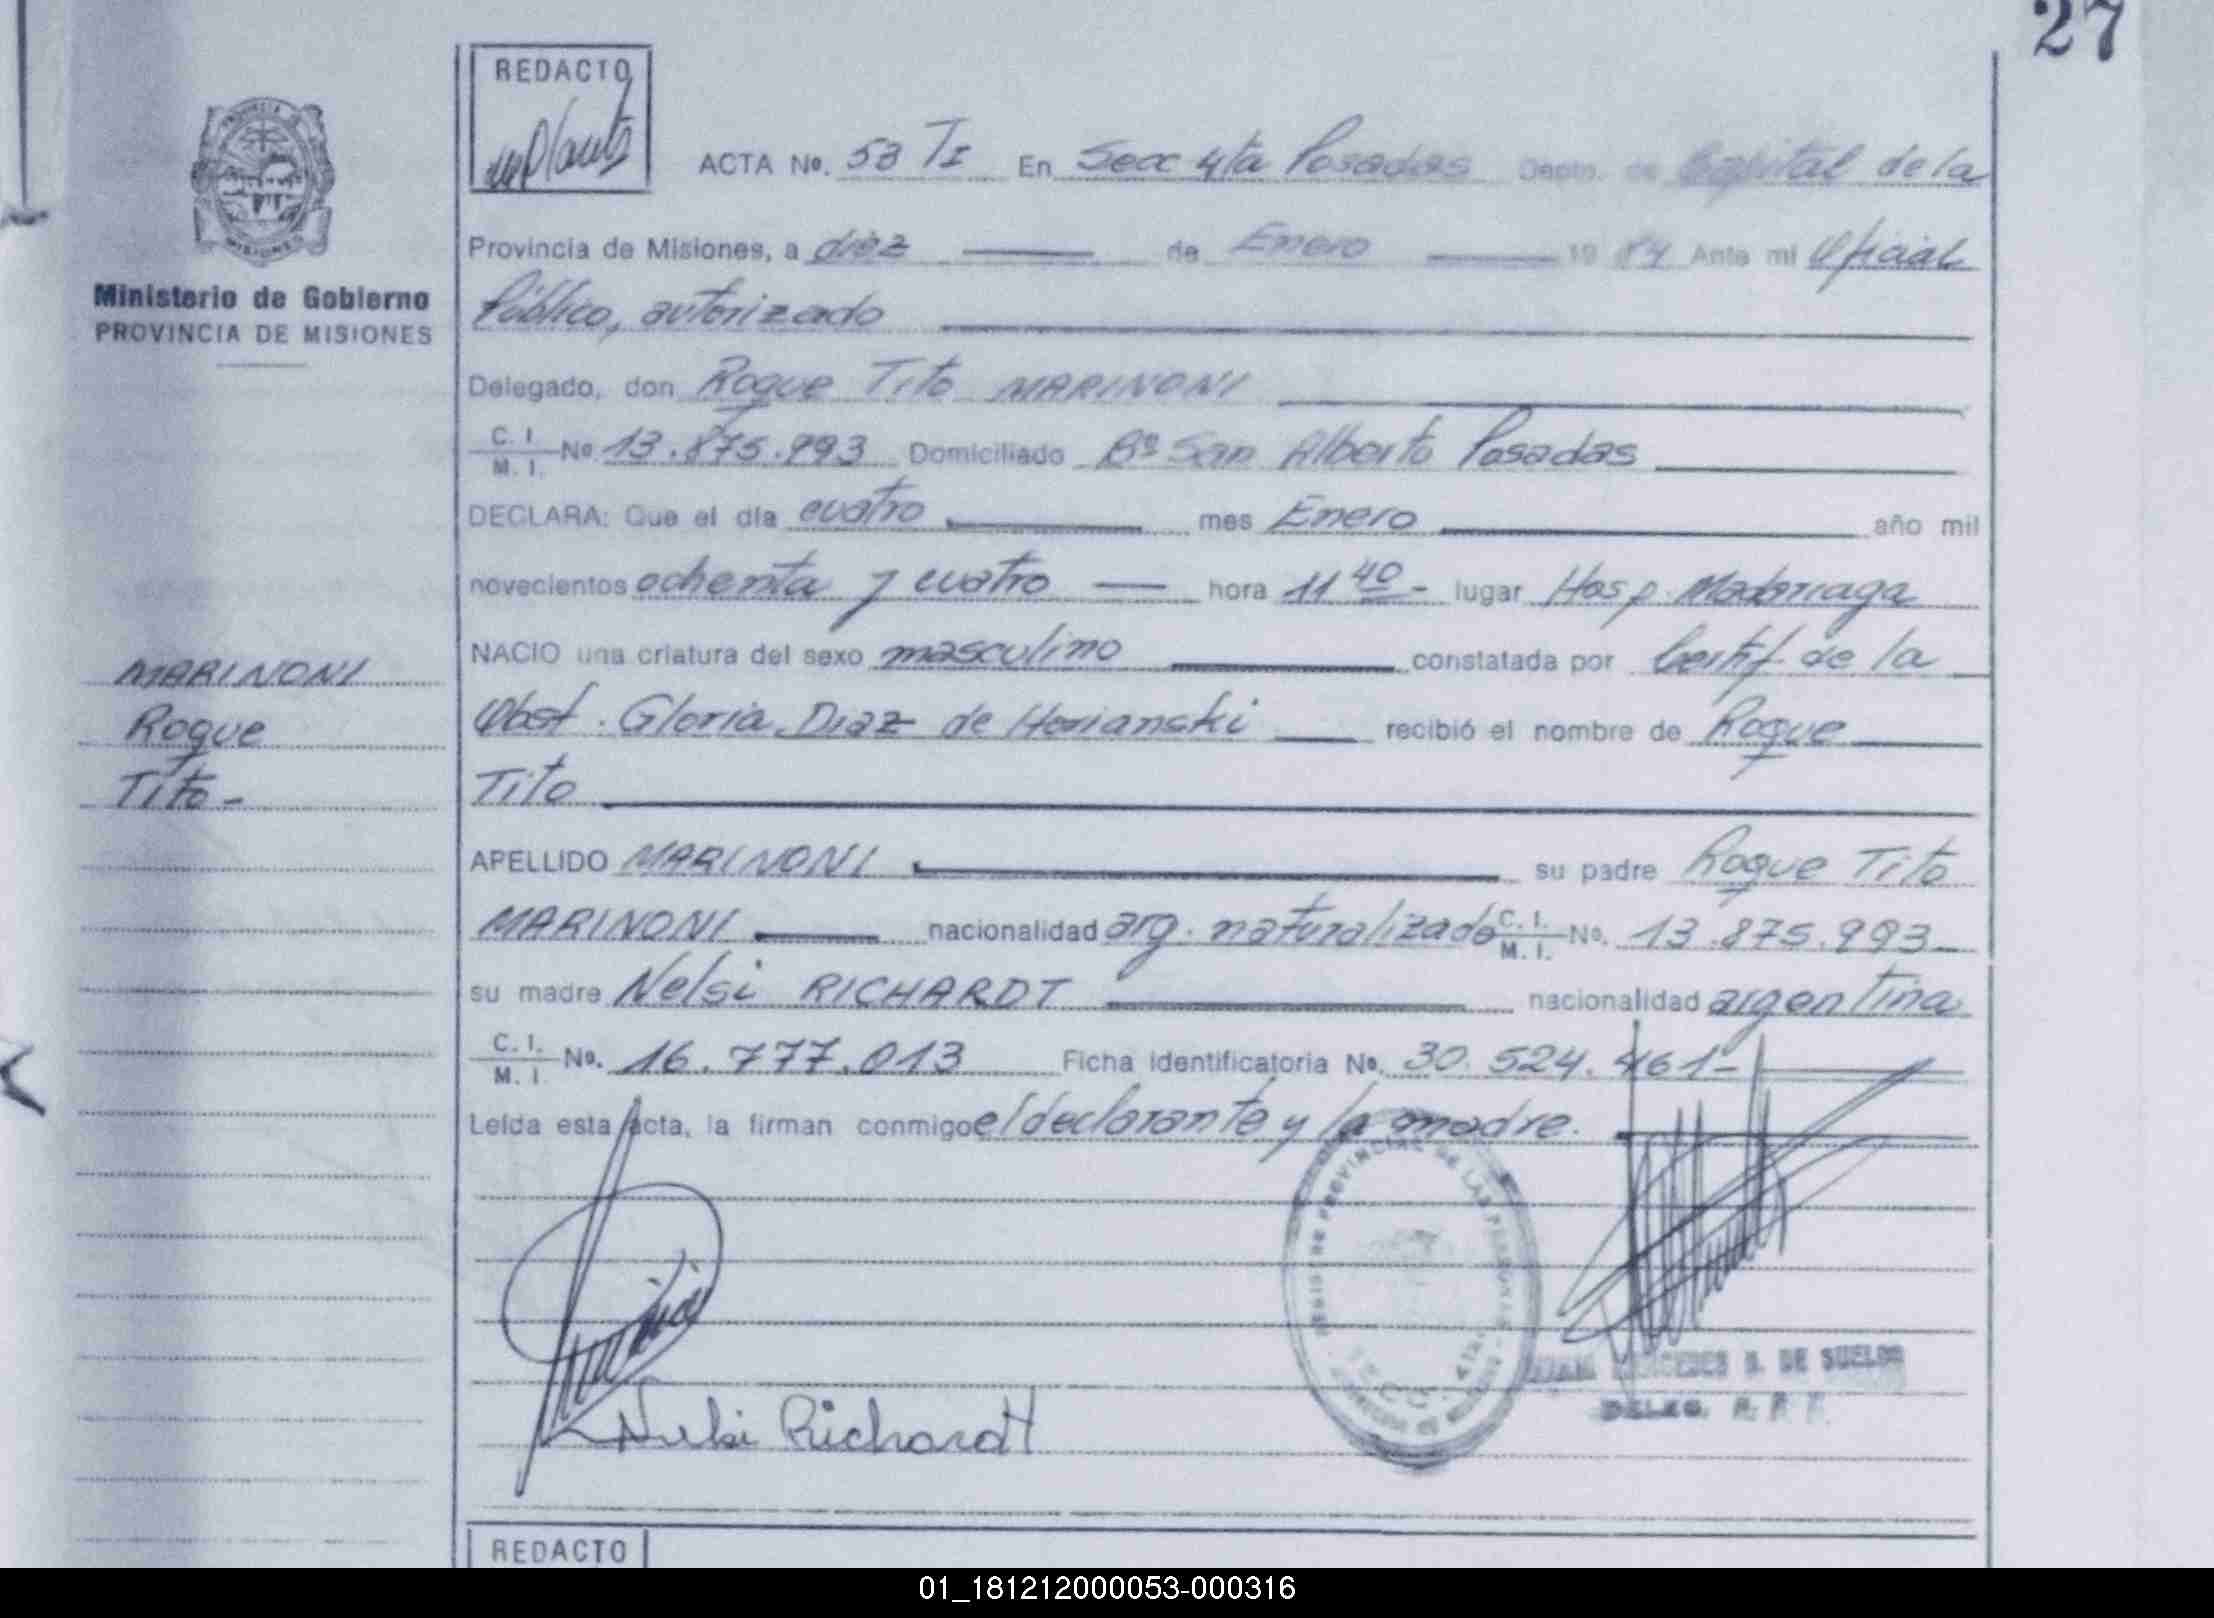 27
REDACTO
ACTA No. 53 TI En Secc 4ta Posadas Depto. de Capital de la
Provincia de Misiones, a diez de Enero 1984 Ante mi Oficial
Público, autorizado
Ministerio de Gobierno
PROVINCIA DE MISIONES
Delegado, don Roque Tito MARINONI
C. I. M. I. No 13.875.993 Domiciliado Bº San Alberto Posadas
DECLARA: Que el día cuatro mes Enero año mil
novecientos ochenta y cuatro hora 11 40 - lugar Hosp. Madariaga
NACIO una criatura del sexo masculino constatada por Certif de la
Obst. Gloria Diaz de recibió el nombre de Roque
Tito
MARINONI
Roque
Tito -
APELLIDO MARINONI su padre Roque Tito
MARINONI nacionalidad arg. naturalizado C. I. M. I. No. 13.875.993-
su madre Nelsi RICHARDT nacionalidad argentina
C. I. M. I. No. 16.777.013 Ficha Identificatoria No. 30.524.461-
Leída esta acta, la firman conmigo el declarante y la madre.
REGISTRO PROVINCIAL DE LAS PERSONAS
Nelsi Richardt
MERCEDES B. DE SUELDO
DELEG. R. P. P.
REDACTO
01_181212000053-000316